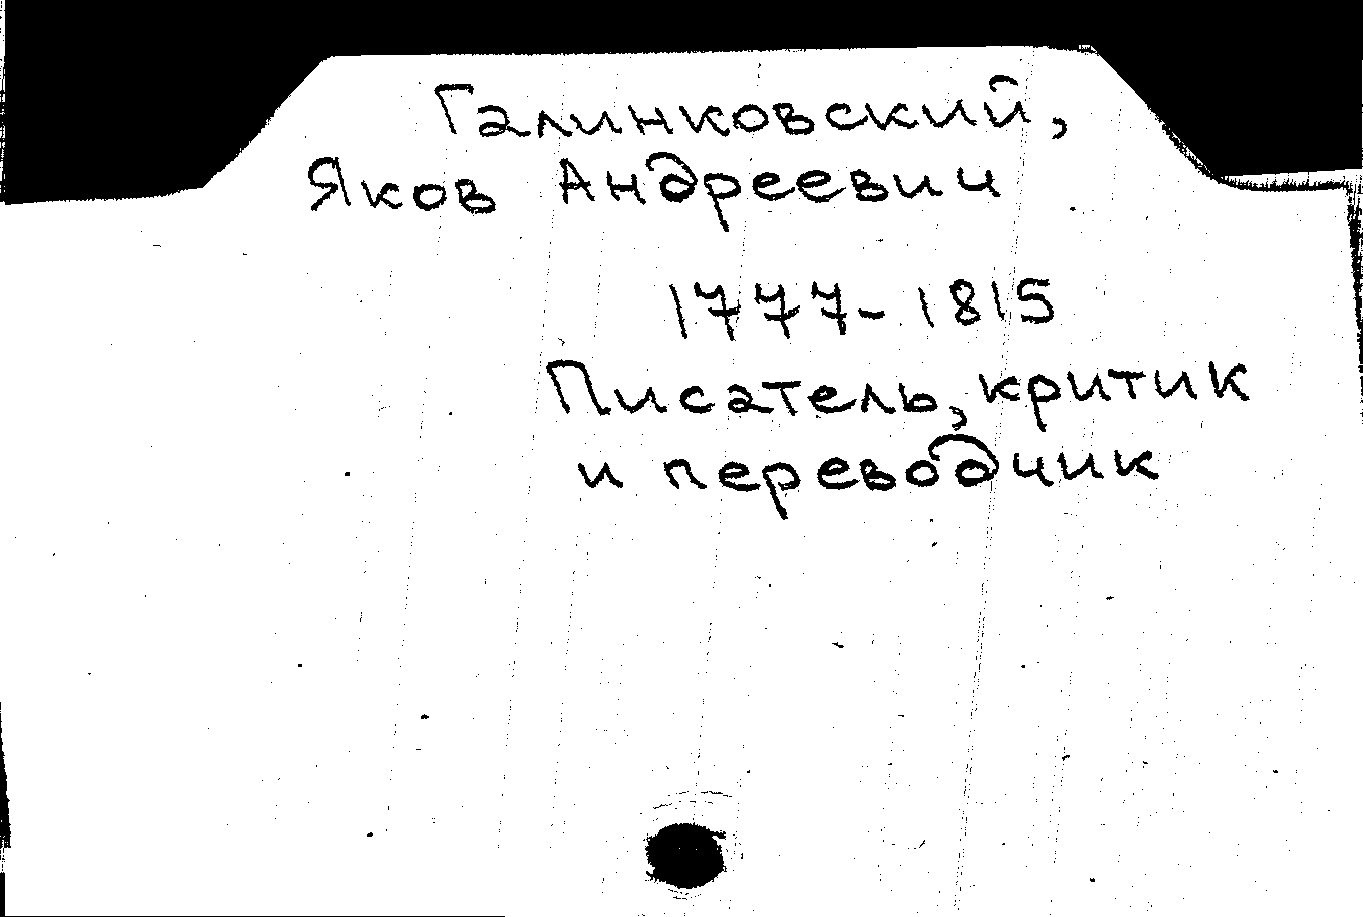 Галинковский,
Яков Андреевич
1777-1815
Писатель, критик
и переводчик